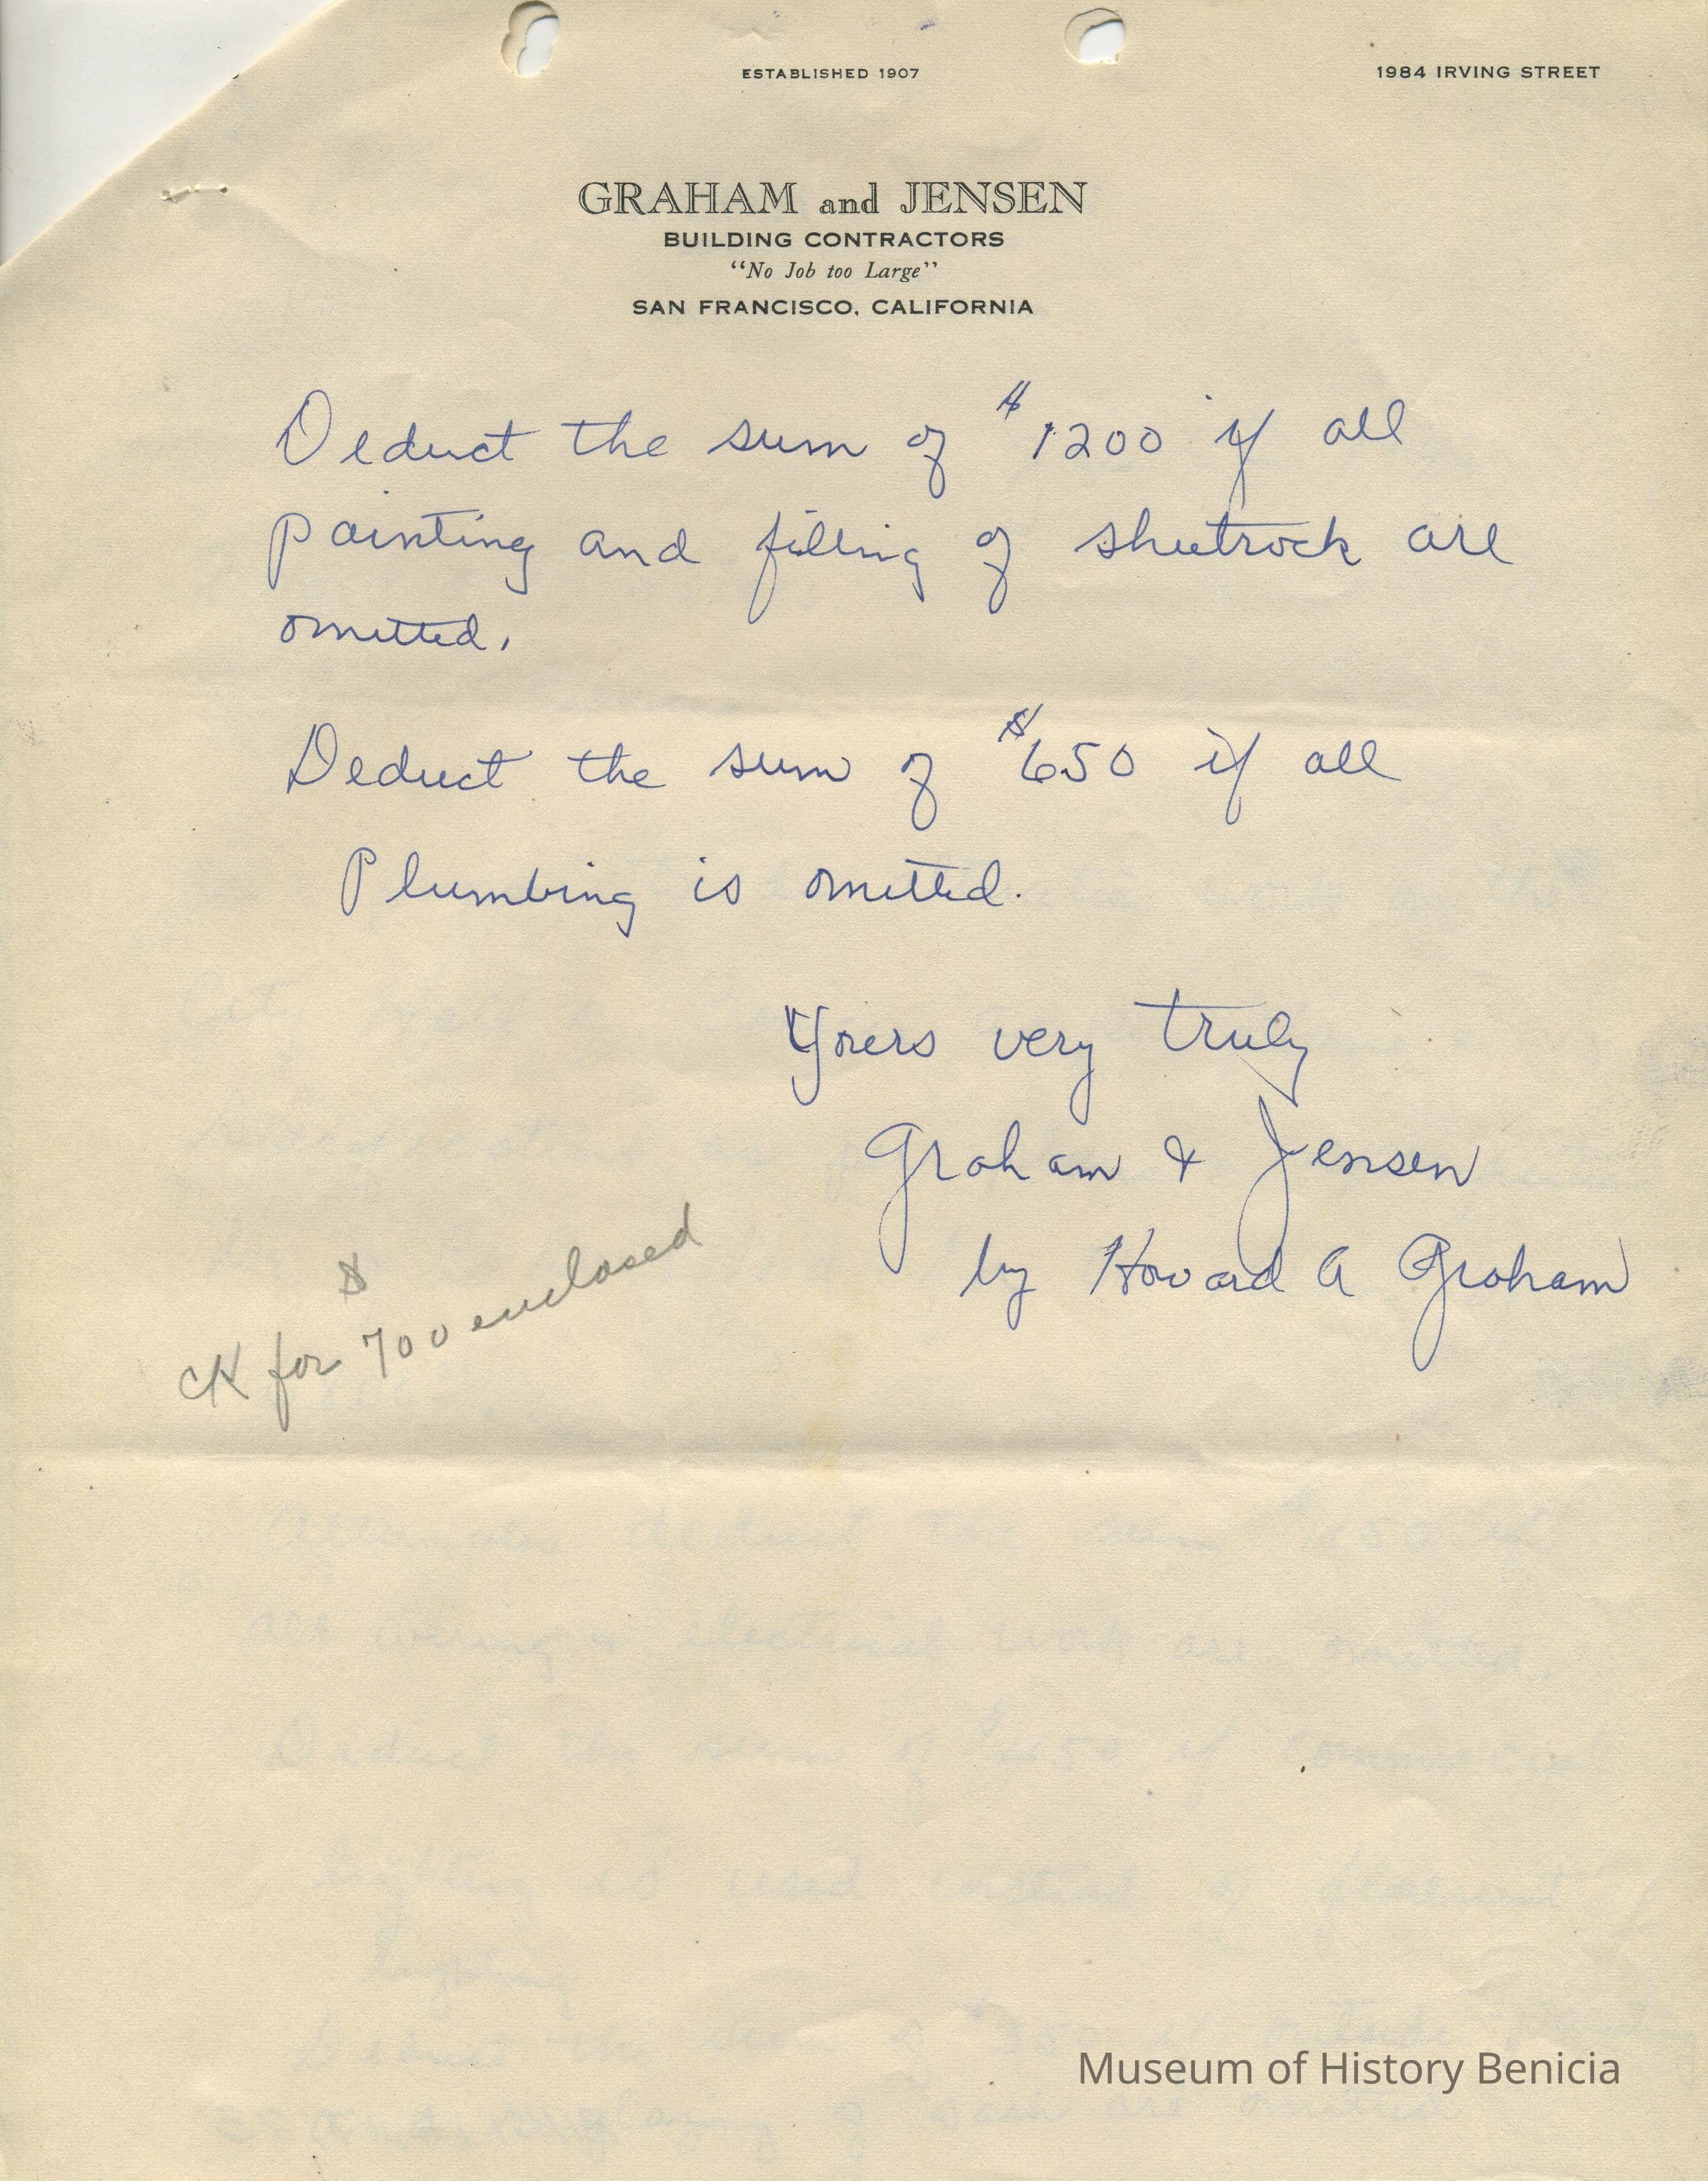 ESTABLISHED 1907
1984 IRVING STREET
GRAHAM and JENSEN
BUILDING CONTRACTORS
"No Job too Large"
SAN FRANCISCO, CALIFORNIA
Deduct the sum of $1200 if all
painting and filling of sheetrock are
omitted.
Deduct the sum of $650 if all
Plumbing is omitted.
Yours very truly
Graham & Jensen
by Howard A Graham
ck for $700 enclosed
all wiring & electrical work are omitted.
Deduct the sum of
lighting is used instead of
Museum of History Benicia